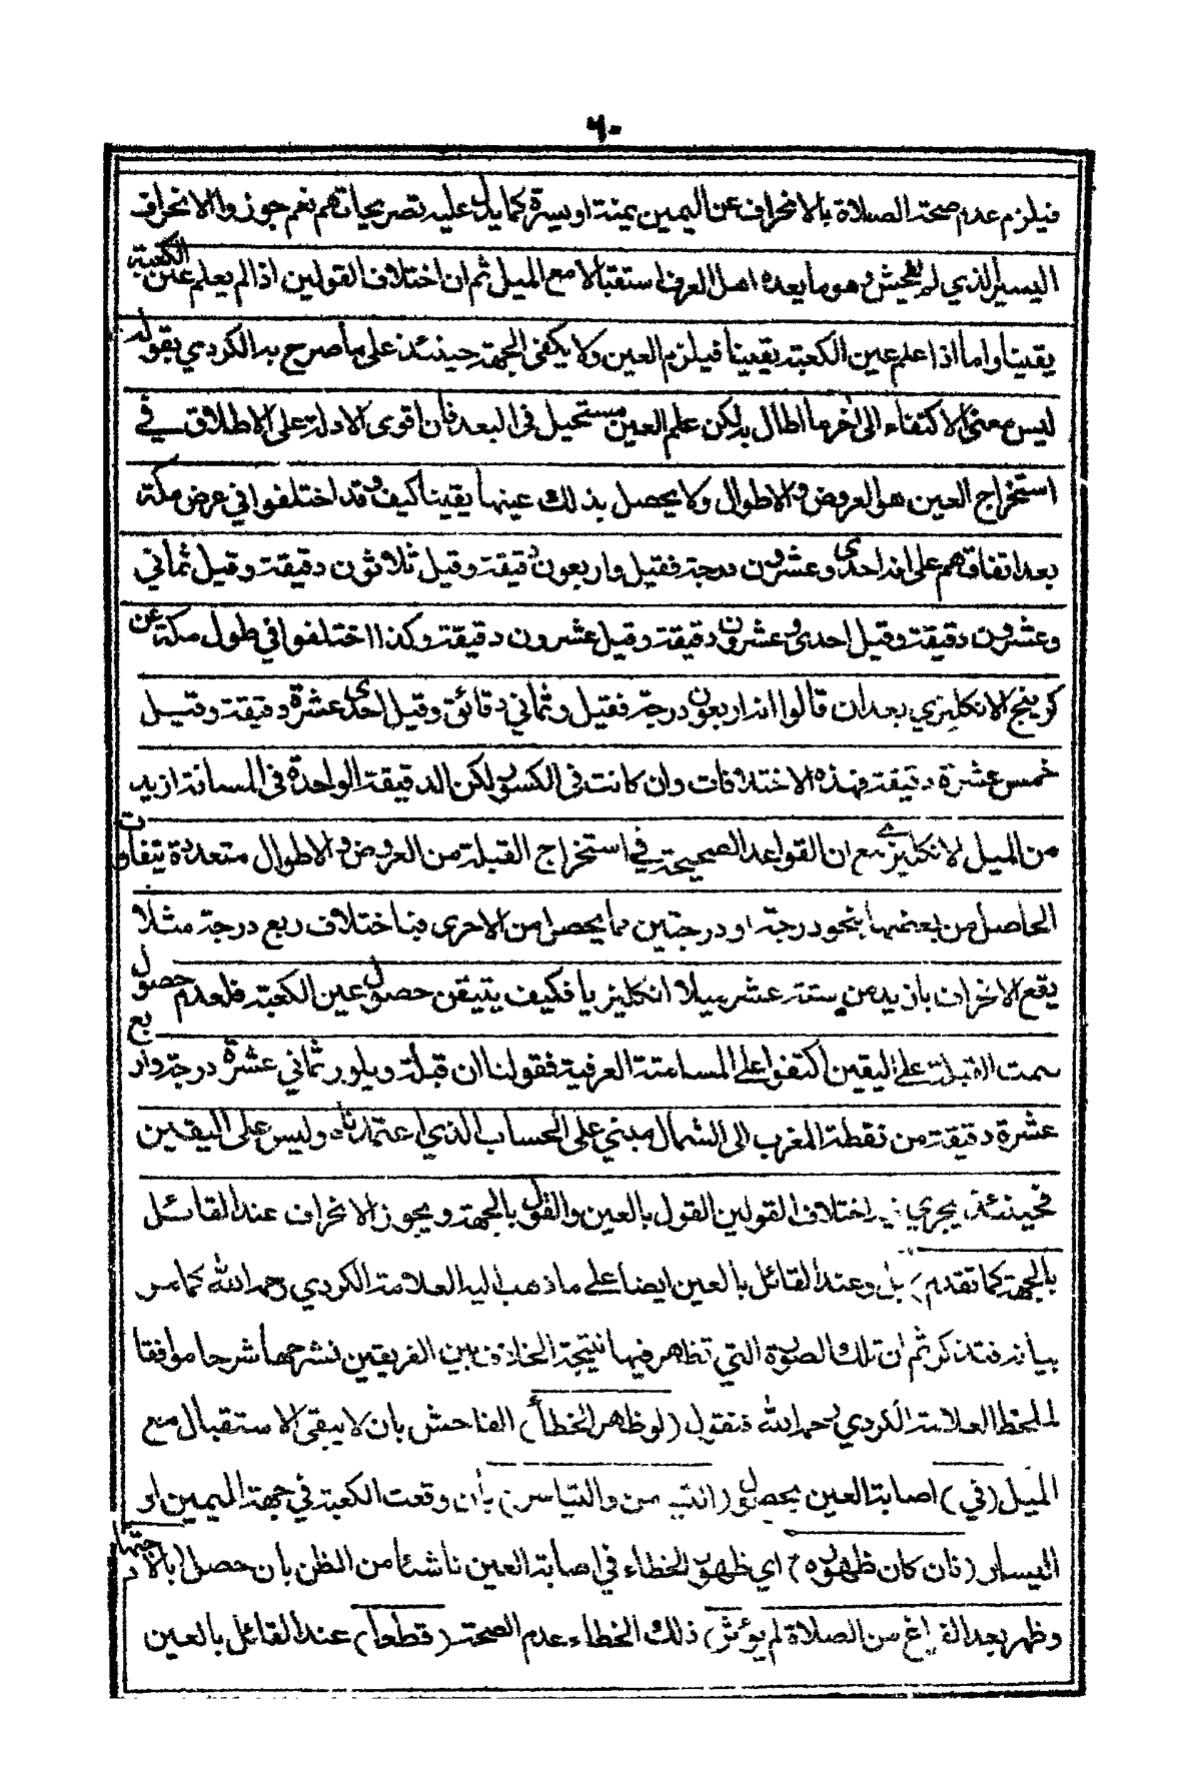 ٦٠
فيلزم عدم صحة الصلاة بالانحراف عن اليمين يمنة او يسرة كما يدل عليه تصريحاتهم نعم جوزوا الانحراف
اليسير الذي لم يفحش وهو ما يعده اهل العرف استقبالا مع الميل ثم ان اختلاف القولين اذا لم يعلم عين الكعبة
يقينا واما اذا علم عين الكعبة يقينا فيلزم العين ولا يكفى الجهة حينئذ على ما صرح به الكردي بقوله
ليس معنى الاكتفاء الى اخر ما اطال به لكن علم العين مستحيل فى البعد فان اقوى الادلة على الاطلاق في
استخراج العين هو العروض والاطوال ولا يحصل بذلك عينها يقينا كيف وقد اختلفوا في عرض مكة
بعد اتفاقهم على انه احدى وعشرون درجة فقيل واربعون دقيقة وقيل ثلاثون دقيقة وقيل ثماني
وعشرون دقيقة وقيل احدى وعشرون دقيقة وقيل عشرون دقيقة وكذا اختلفوا في طول مكة عن
كرينج الانكليزي بعد ان قالوا انه اربعون درجة فقيل وثماني دقائق وقيل احدى عشرة دقيقة وقيل
خمس عشرة دقيقة فهذه الاختلافات وان كانت فى الكسور لكن الدقيقة الواحدة فى المسافة ازيد
من الميل الانكليزي مع ان القواعد الصحيحة في استخراج القبلة من العروض والاطوال متعددة يتفاوت
الحاصل من بعضها بنحو درجة او درجتين مما يحصل من الاخرى فباختلاف ربع درجة مثلا
يقع الانحراف بازيد من ستة عشر ميلا انكليزيا فكيف يتيقن حصول عين الكعبة فلعدم حصول
سمت القبلة على اليقين اكتفوا على المسامتة العرفية فقولنا ان قبلة ويلور ثماني عشرة درجة واربع
عشرة دقيقة من نقطة المغرب الى الشمال مبني على الحساب الذي اعتمدناه وليس على اليقين
فحينئذ يجري فيه اختلاف القولين القول بالعين والقول بالجهة ويجوز الانحراف عند القائل
بالجهة كما تقدم) بل وعند القائل بالعين ايضا على ما ذهب اليه العلامة الكردي رحمه الله كما مر
بيانه فتذكر ثم ان تلك الصورة التي تظهر فيها نتيجة الخلاف بين الفريقين نشرحها شرحا موافقا
لملحظ العلامة الكردي رحمه الله فنقول (لو ظهر الخطأ) الفاحش بان لا يبقى الاستقبال مع
الميل (في) اصابة العين بحصول (التيامن والتياسر) بأن وقعت الكعبة في جهة اليمين او
اليسار (فان كان ظهوره) اي ظهور الخطاء في اصابة العين ناشئا من الظن بأن حصل (بالاجتهاد
وظهر بعد الفراغ من الصلاة لم يؤثر) ذلك الخطاء عدم الصحة (قطعا) عند القائل بالعين